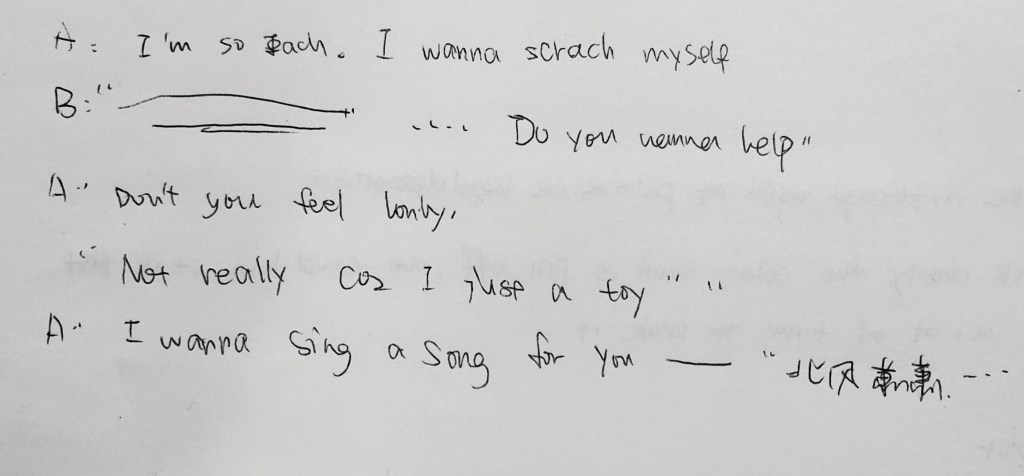 A: I'm so each. I wanna scrach myself
B: "———" .... Do you wanna help"
A: Don't you feel lonly,
"Not really coz I just a toy" "
A: I wanna sing a song for you —— "北风萧萧 ...